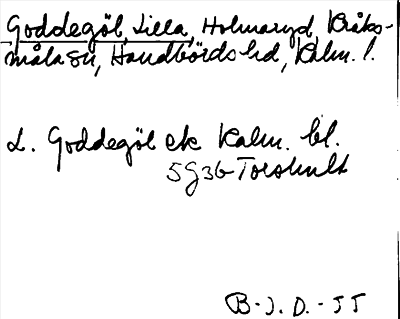 Goddegöl, Lilla, Holmaryd, Kråks-
måla sn, Handbörds hd, Kalm. l.
L. Goddegöl ek Kalm. bl.
5G3b Torshult
B-J. D.-JJ